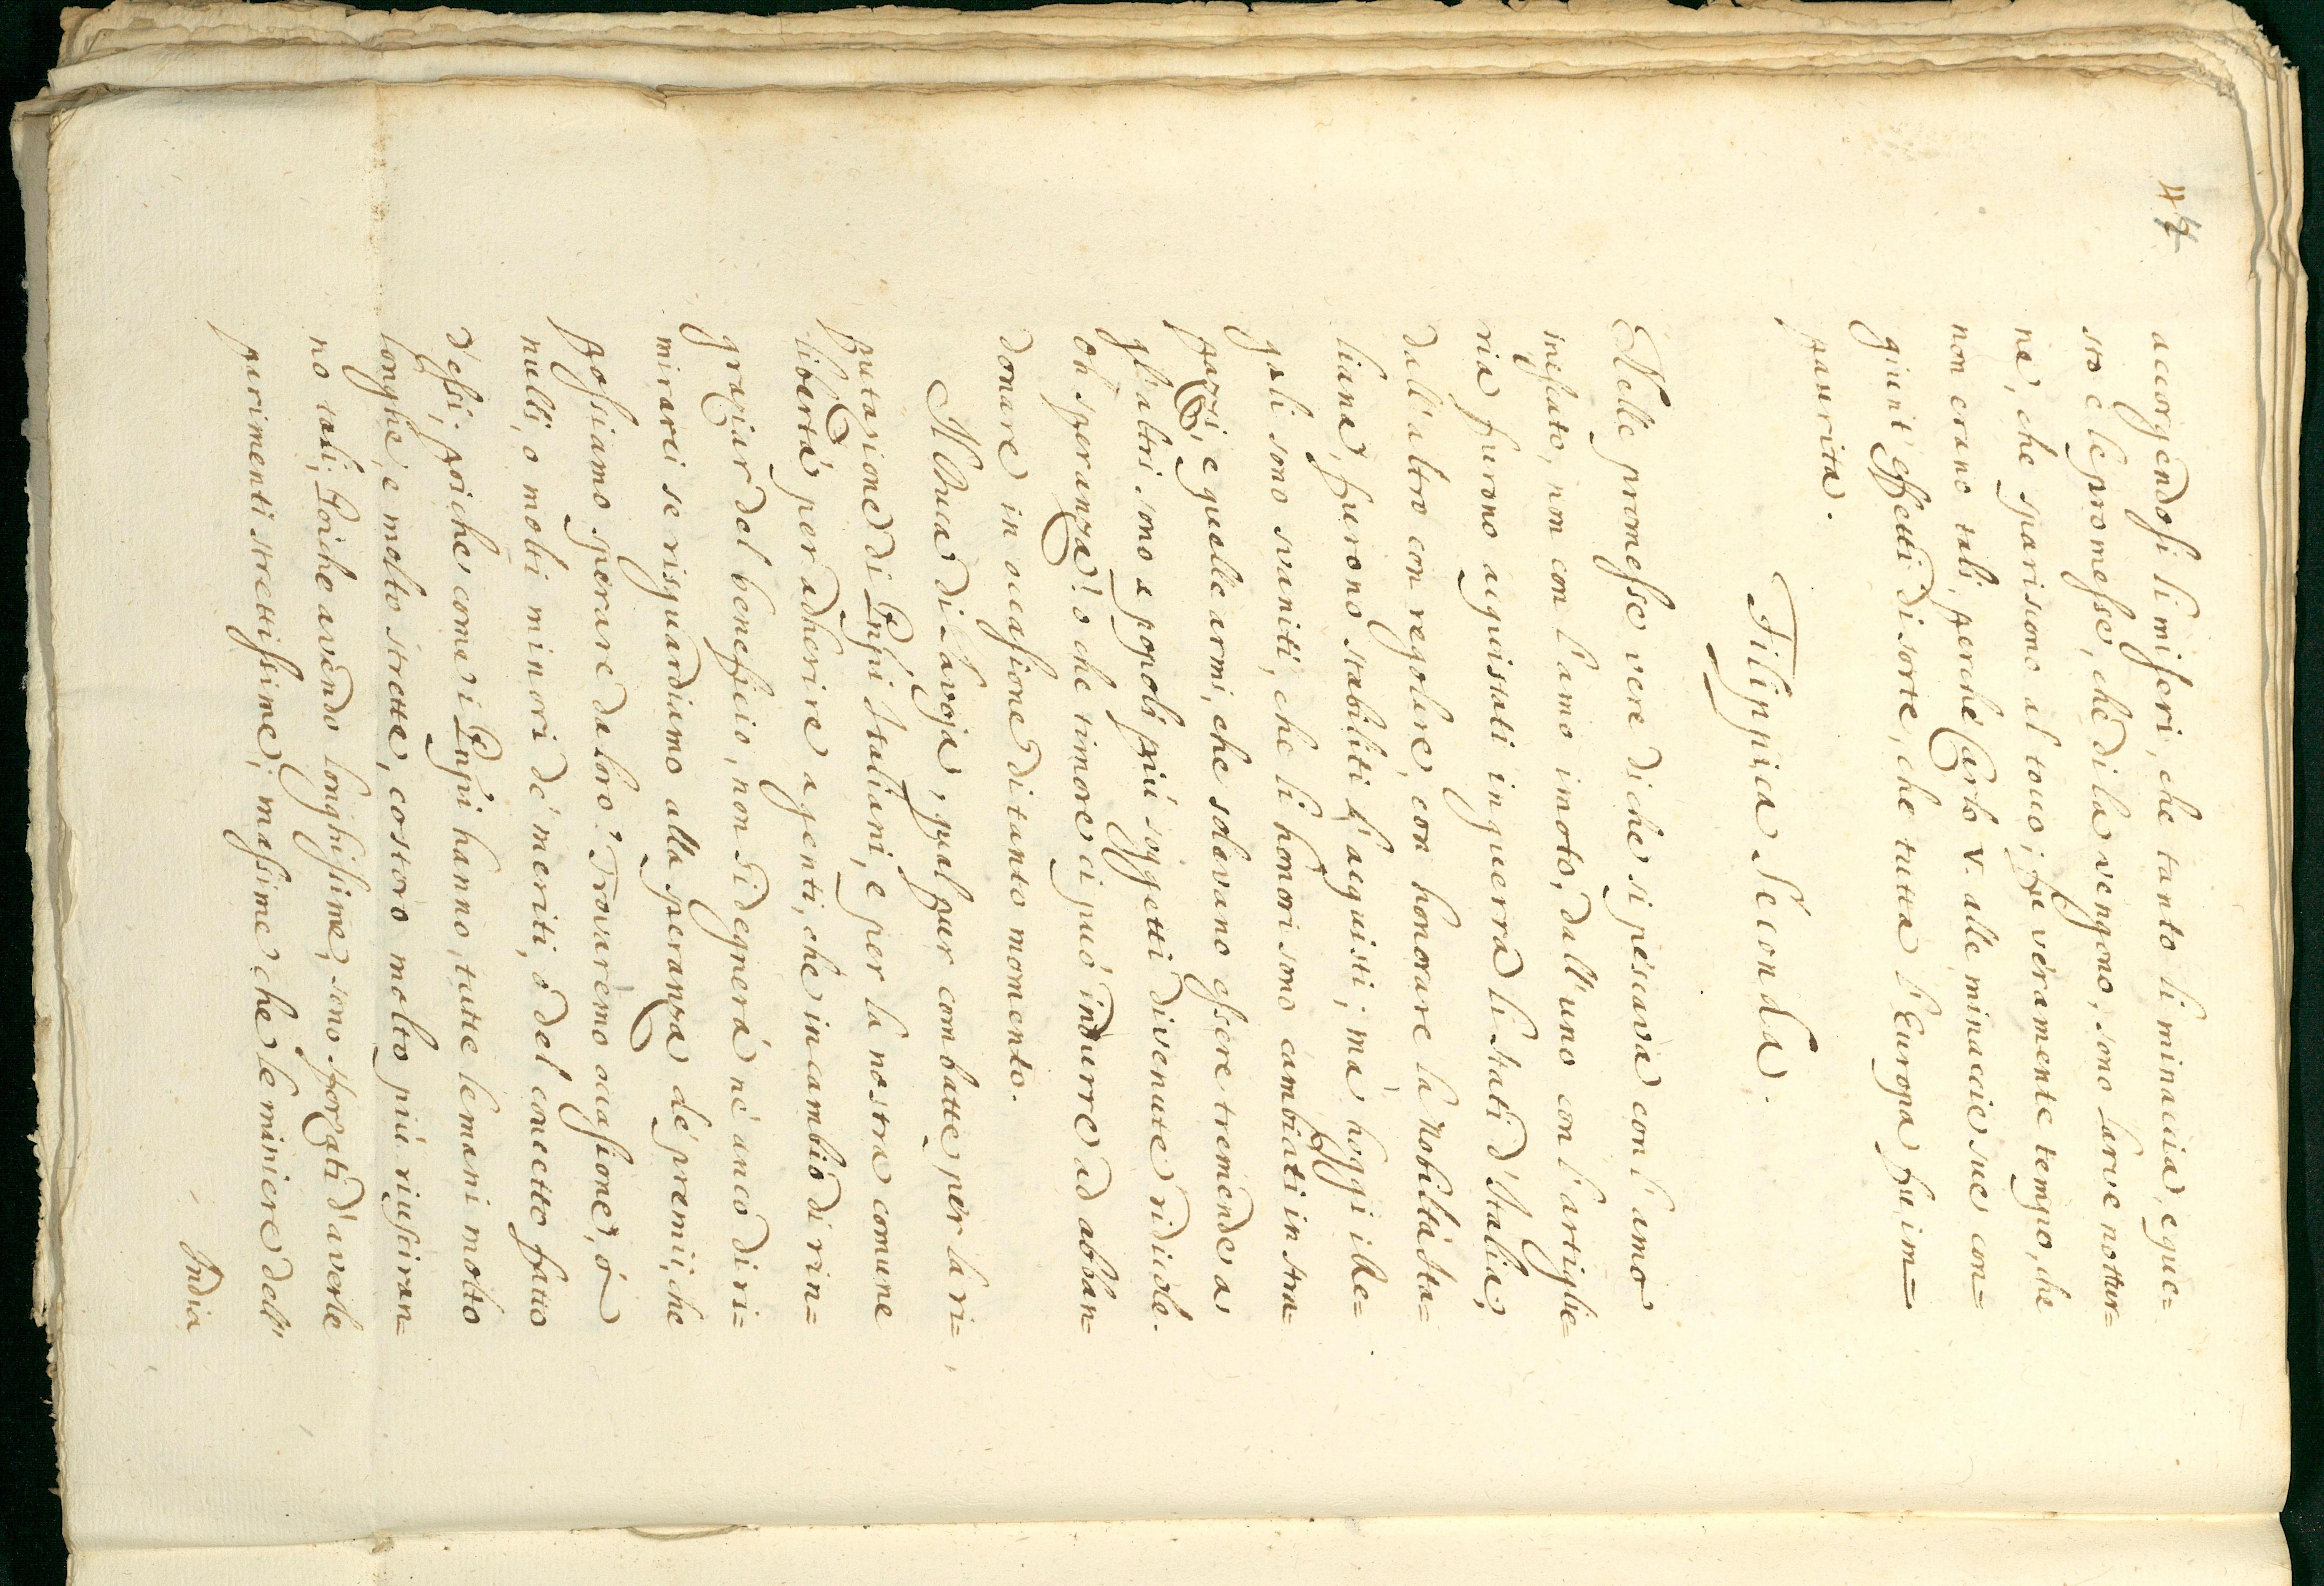 44
accorgendosi li miseri, che tanto li minaccia, e que=
sto e le promesse, che di la vengono, sono larve nottur=
ne, che spariscono al tocco; fu veramente tempo, che
non erano tali, perche Carlo V. alle minaccie sue con=
giunt' effetti di sorte, che tutta l'Europa fu im=
paurita.
Filippica Seconda.
Nelle promesse vere di che si pescava con l'amo
inescato, non con l'amo inorto, dall'uno con l'artiglie=
ria furono acquistati in guerra li stati d'Italia;
dall'altro con regolare, con honorare la Nobiltà Ita=
liana, furono stabiliti l'acquisti; mà hoggi ille=
gali sono svaniti, che li honori sono cambiati in stra=
pazzi, e quelle armi, che solevano essere tremende a
gl'altri sono a popoli più soggetti divenute ridicole.
oh speranza! o che timore ci può indurre ad abban=
donare in occasione di tanto momento.
Il Duca di Savoja, qual pur combatte per la ri=
putazione di Prn̄pi Italiani, e per la nostra comune
libertà per adherire a genti, che in cambio di rin=
graziar del beneficio, non si degnerà nè anco di ri=
mirarci se risguardiamo alla speranza de' premii, che
possiamo sperare da loro? Trovaremo occasione, ò
nulli, o molti minori de' meriti, ò del concetto fatto
d'essi, poiche come i Prn̄pi hanno, tutte le mani molto
longhe, e molto strette, costoro molto più riusciran=
no tali; Poiche avendo longhissime, sono sforzati d'averle
parimenti strettissime; massime che le miniere dell'
India